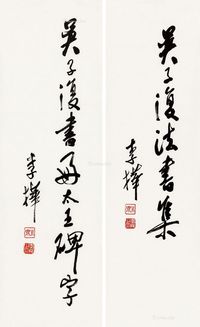 吴子复法书集
李桦
吴子复书好太王碑字
李桦